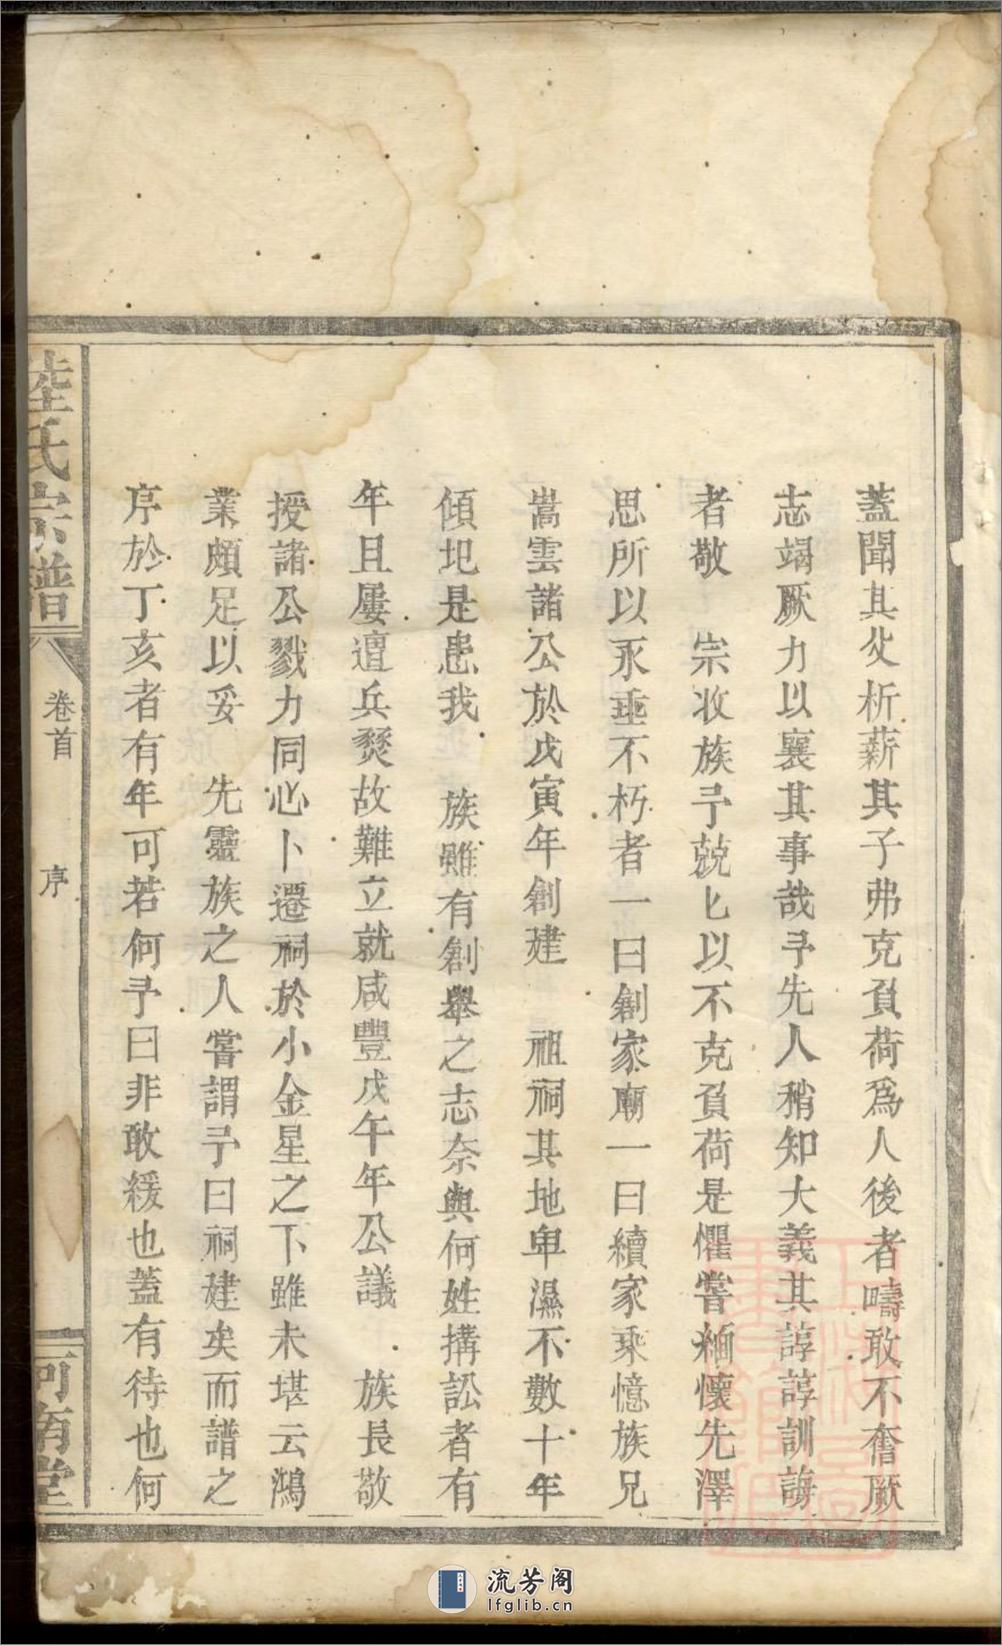 蓋聞其父析薪其子弗克負荷為人後者疇敢不奮厥
志竭厥力以襄其事哉予先人稍知大義其諄諄訓誨
者敬 宗收族予兢匕以不克負荷是懼嘗緬懷先澤
思所以永垂不朽者一曰創家廟一曰續家乘憶族兄
嵩雲諸公於戊寅年創建 祖祠其地卑濕不數十年
傾圯是患我 族雖有創舉之志奈與何姓搆訟者有
年且屢遭兵燹故難立就咸豐戊午年公議 族長敬
授諸公戮力同心卜遷祠於小金星之下雖未堪云鴻
業頗足以妥 先靈族之人嘗謂予曰祠建矣而譜之
序於丁亥者有年可若何予曰非敢緩也蓋有待也何
陸氏宗譜
卷首
序
河南堂
流芳阁
lfglib.cn